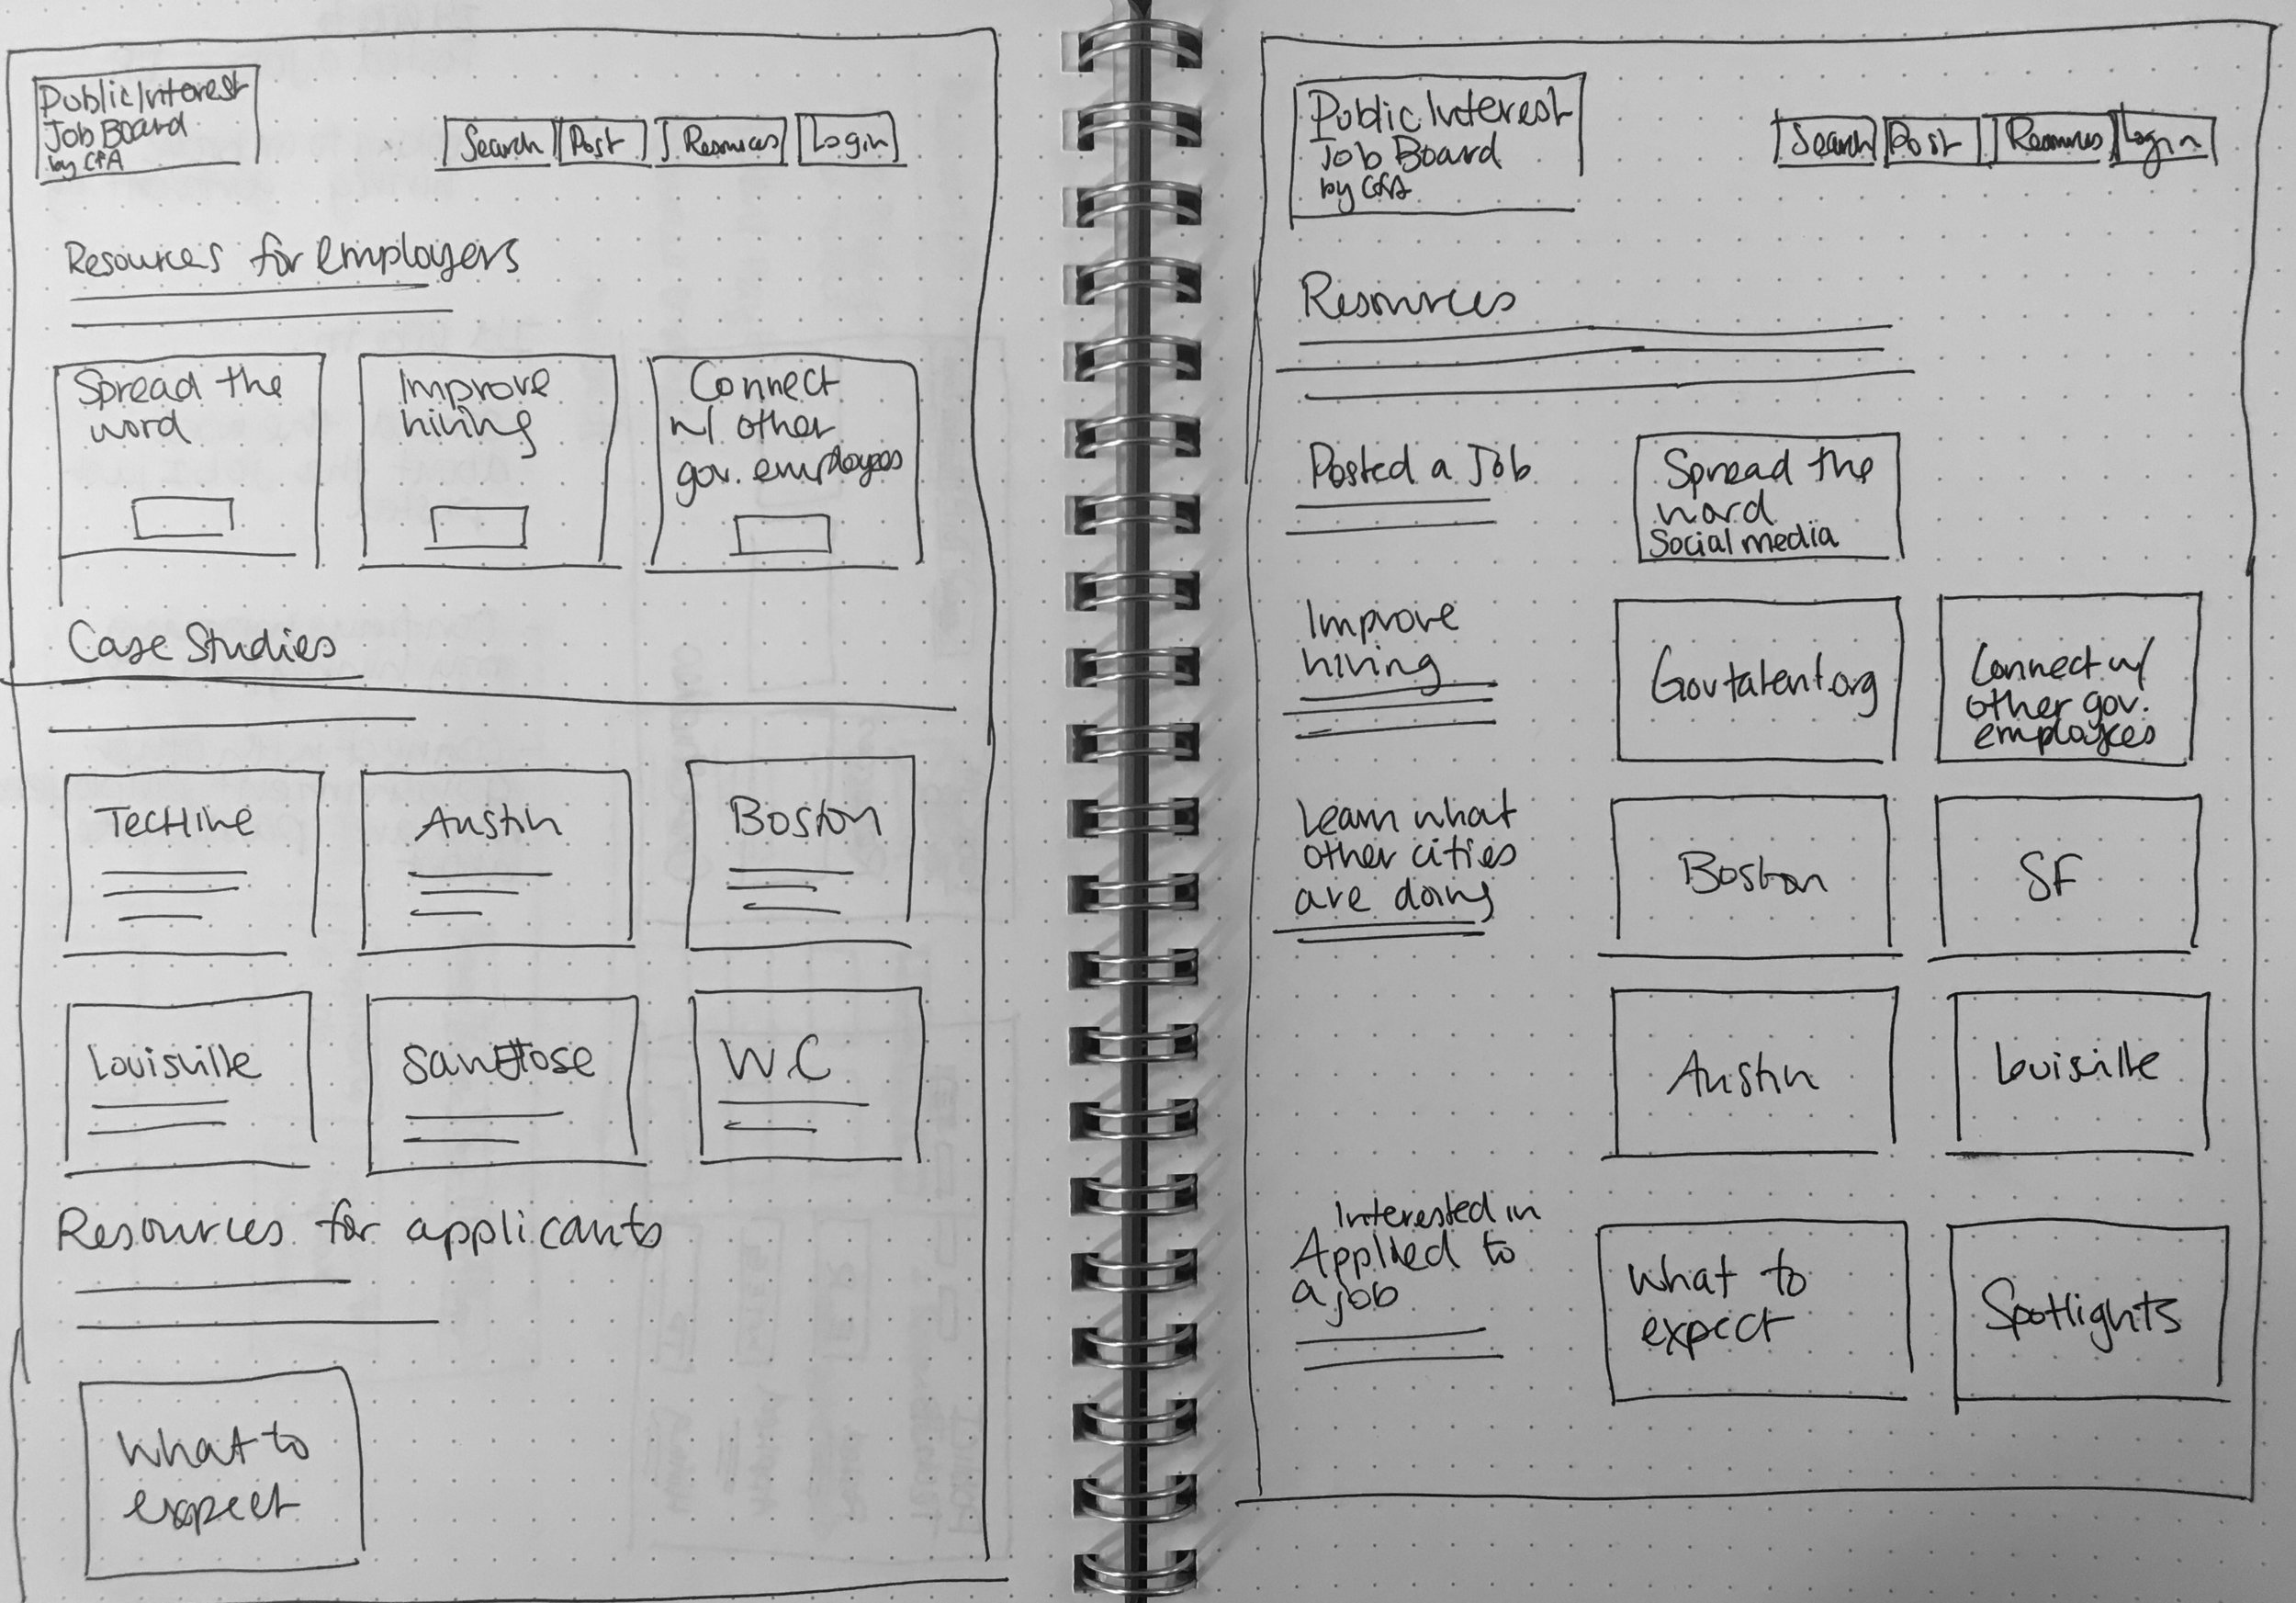 Public Interest
Job Board
by CfA
Search
Post
Resources
Login
Resources for employers
Spread the
word
Improve
hiring
Connect
w/ other
gov. employees
Case Studies
TecHire
Austin
Boston
Louisville
San Jose
W.C
Resources for applicants
What to
expect
Public Interest
Job Board
by CfA
Search
Post
Resources
Login
Resources
Posted a Job
Spread the
word
Social media
Improve
hiring
Govtalent.org
Connect w/
other gov.
employees
Learn what
other cities
are doing
Boston
SF
Austin
Louisville
Interested in
Applied to
a job
What to
expect
Spotlights